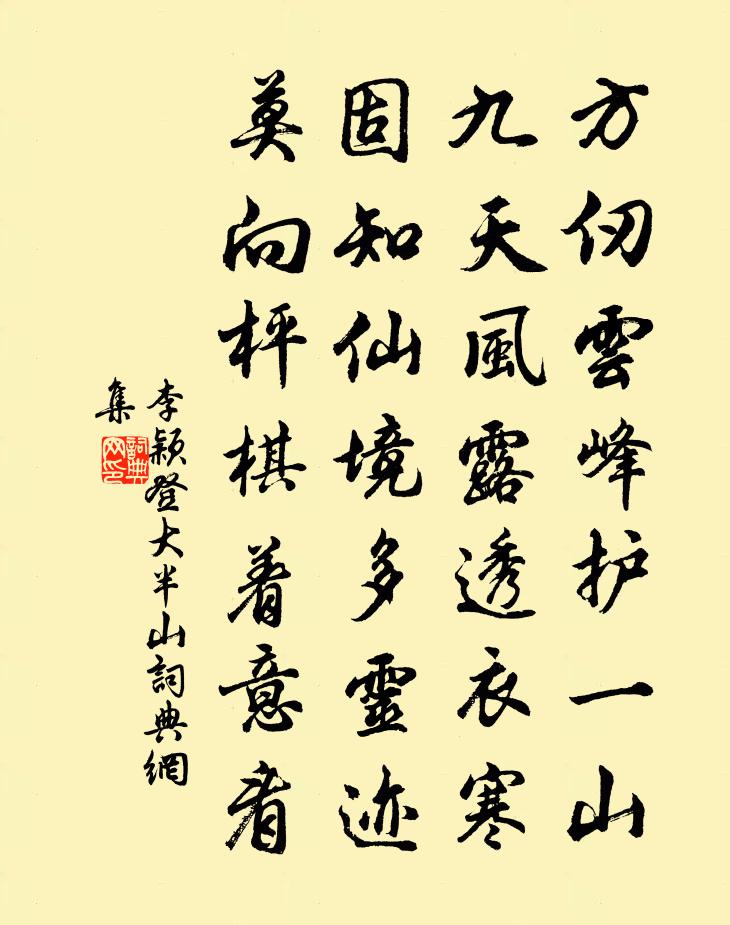 方仞雲峰护一山
九天風露透衣寒
固知仙境多靈迹
莫向枰棋着意看
李颖登大半山詞典網
集
詞典
网印